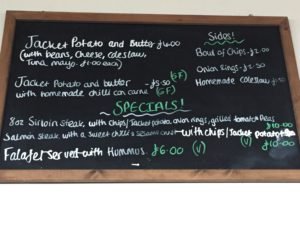 Jacket Potato and Butter £4.00
(with beans, Cheese, coleslaw,
Tuna mayo - £1.00 each)
Jacket Potato and butter - £5.50 (GF)
with homemade chilli con carne (GF)
Sides!
Bowl of Chips - £2.00
Onion Rings - £2.50
Homemade Coleslaw
SPECIALS!
8oz Sirloin Steak, with chips/Jacket potato, onion rings, grilled tomato & Peas £10.00
Salmon steak with a Sweet chilli & sesame with chips/Jacket potato £10.00
Falafel Served with Hummus. £6.00 (V) (V)